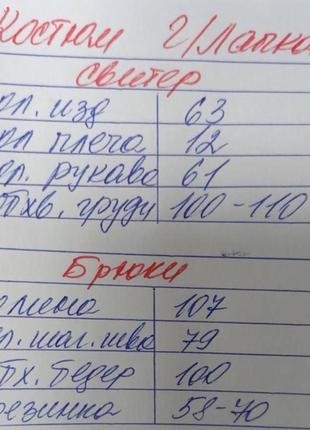 Костюм Г/Лапка
свитер
дл. изд 63
дл плеча 12
дл. рукава 61
Обхв. груди 100-110
Брюки
длина 107
дл. шаг. шва 79
Обх. бедер 100
резинка 58-70